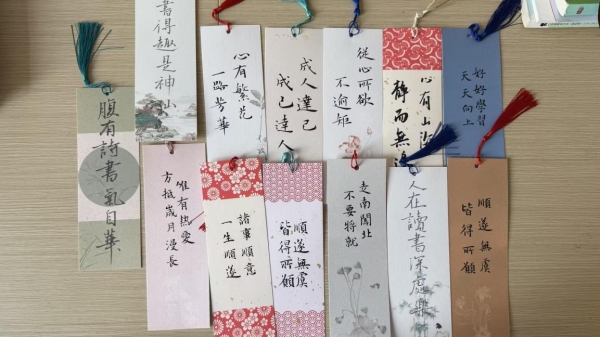 腹有詩書氣自華
書得趣是神仙
心有繁花
一路芳華
成人達己
成己達人
從心所欲
不逾矩
心有山海
靜而無邊
好好學習
天天向上
唯有熱愛
方抵歲月漫長
諸事順意
一生順遂
順遂無虞
皆得所願
走南闖北
不要將就
人在讀書深處樂
順遂無虞
皆得所願